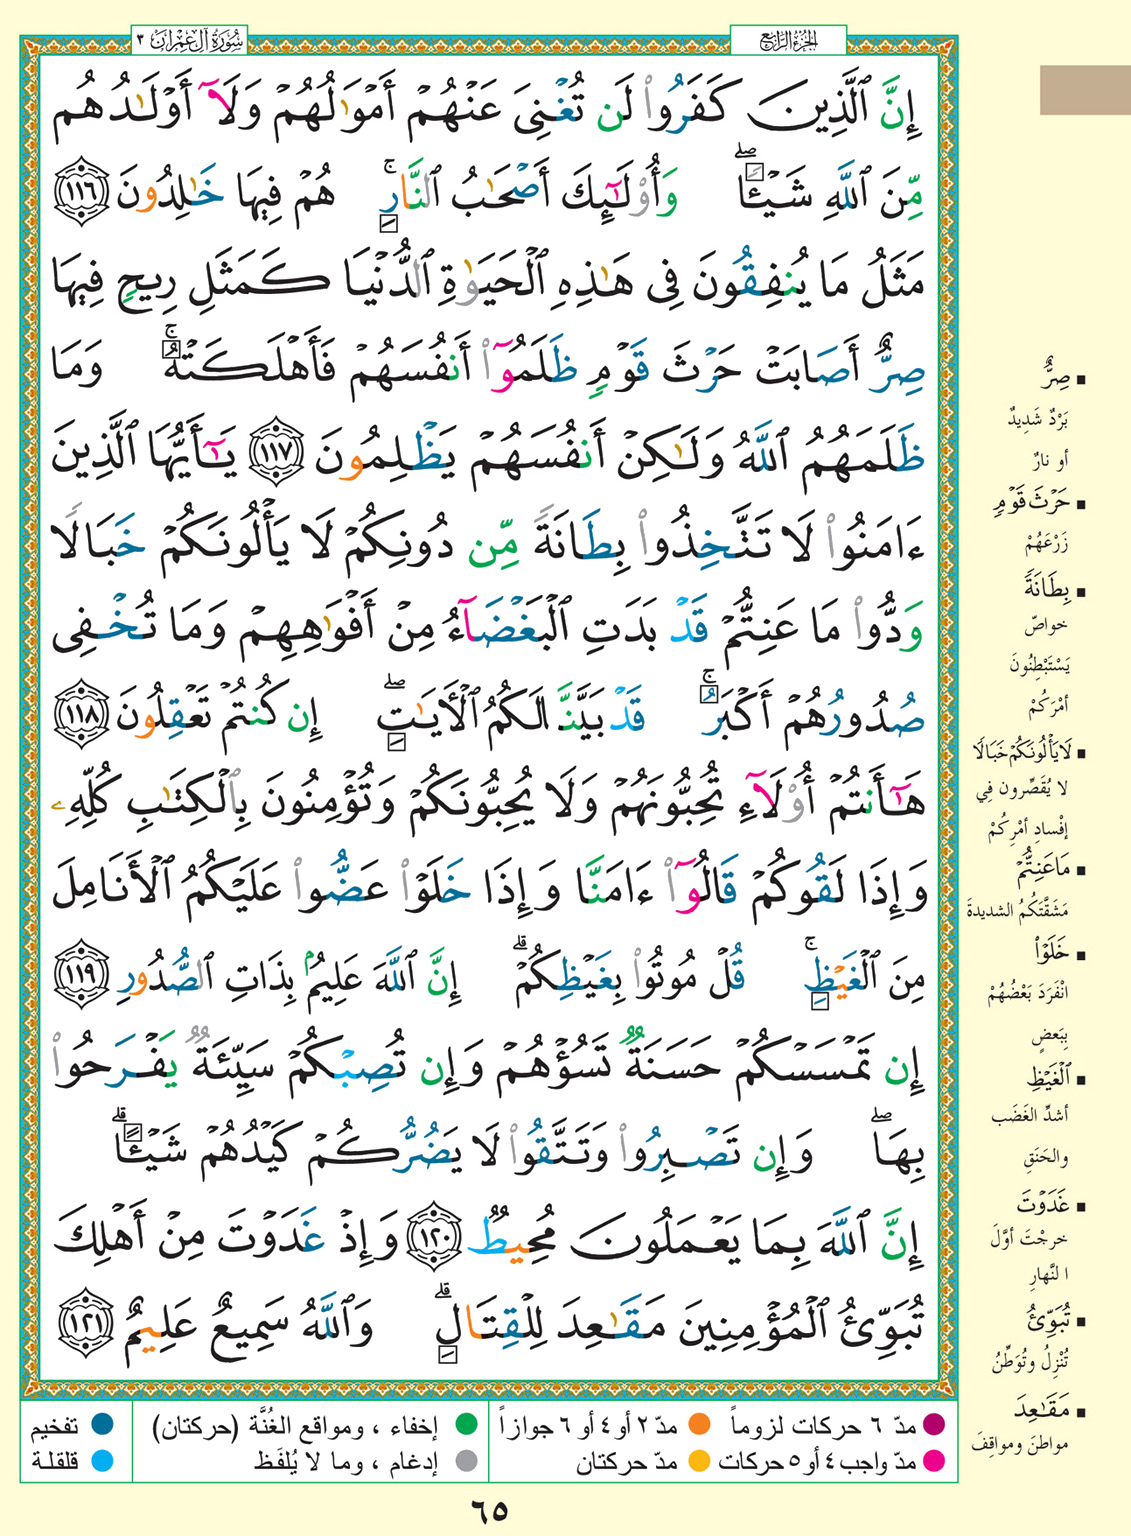 سُورَةُ آلِ عِمْرَان ٣
الجُزءُ الرَّابِعُ
إِنَّ ٱلَّذِينَ كَفَرُوا۟ لَن تُغْنِىَ عَنْهُمْ أَمْوَٰلُهُمْ وَلَآ أَوْلَـٰدُهُم
مِّنَ ٱللَّهِ شَيْـًٔا ۖ وَأُو۟لَـٰٓئِكَ أَصْحَـٰبُ ٱلنَّارِ ۚ هُمْ فِيهَا خَـٰلِدُونَ ١١٦
مَثَلُ مَا يُنفِقُونَ فِى هَـٰذِهِ ٱلْحَيَوٰةِ ٱلدُّنْيَا كَمَثَلِ رِيحٍ فِيهَا
صِرٌّ أَصَابَتْ حَرْثَ قَوْمٍ ظَلَمُوٓا۟ أَنفُسَهُمْ فَأَهْلَكَتْهُ ۚ وَمَا
ظَلَمَهُمُ ٱللَّهُ وَلَـٰكِنْ أَنفُسَهُمْ يَظْلِمُونَ ١١٧ يَـٰٓأَيُّهَا ٱلَّذِينَ
ءَامَنُوا۟ لَا تَتَّخِذُوا۟ بِطَانَةً مِّن دُونِكُمْ لَا يَأْلُونَكُمْ خَبَالًا
وَدُّوا۟ مَا عَنِتُّمْ قَدْ بَدَتِ ٱلْبَغْضَآءُ مِنْ أَفْوَٰهِهِمْ وَمَا تُخْفِى
صُدُورُهُمْ أَكْبَرُ ۚ قَدْ بَيَّنَّا لَكُمُ ٱلْـَٔايَـٰتِ ۖ إِن كُنتُمْ تَعْقِلُونَ ١١٨
هَـٰٓأَنتُمْ أُو۟لَآءِ تُحِبُّونَهُمْ وَلَا يُحِبُّونَكُمْ وَتُؤْمِنُونَ بِٱلْكِتَـٰبِ كُلِّهِۦ
وَإِذَا لَقُوكُمْ قَالُوٓا۟ ءَامَنَّا وَإِذَا خَلَوْا۟ عَضُّوا۟ عَلَيْكُمُ ٱلْأَنَامِلَ
مِنَ ٱلْغَيْظِ ۚ قُلْ مُوتُوا۟ بِغَيْظِكُمْ ۗ إِنَّ ٱللَّهَ عَلِيمٌۢ بِذَاتِ ٱلصُّدُورِ ١١٩
إِن تَمْسَسْكُمْ حَسَنَةٌ تَسُؤْهُمْ وَإِن تُصِبْكُمْ سَيِّئَةٌ يَفْرَحُوا۟
بِهَا ۖ وَإِن تَصْبِرُوا۟ وَتَتَّقُوا۟ لَا يَضُرُّكُمْ كَيْدُهُمْ شَيْـًٔا ۗ
إِنَّ ٱللَّهَ بِمَا يَعْمَلُونَ مُحِيطٌ ١٢٠ وَإِذْ غَدَوْتَ مِنْ أَهْلِكَ
تُبَوِّئُ ٱلْمُؤْمِنِينَ مَقَـٰعِدَ لِلْقِتَالِ ۗ وَٱللَّهُ سَمِيعٌ عَلِيمٌ ١٢١
صِرٌّ
بَرْدٌ شَدِيدٌ
أو نارٌ
حَرْثَ قَوْمٍ
زَرْعَهُمْ
بِطَانَةً
خواصّ
يَسْتَبْطِنُونَ
أمْرَكُمْ
لَا يَأْلُونَكُمْ خَبَالًا
لا يُقَصِّرون فِي
إفْسادِ أمْرِكُمْ
مَا عَنِتُّمْ
مَشَقَّتَكُمُ الشديدةَ
خَلَوْا۟
انْفَرَدَ بَعْضُهُمْ
بِبَعضٍ
ٱلْغَيْظِ
أشدِّ الغَضَب
والحَنَقِ
غَدَوْتَ
خرجْتَ أوَّلَ
النَّهارِ
تُبَوِّئُ
تُنْزِلُ وتُوَطِّنُ
مَقَـٰعِدَ
مواطنَ ومواقِفَ
مدّ ٦ حركات لزوماً
مدّ ٢ أو ٤ أو ٦ جوازاً
إخفاء ، ومواقع الغُنَّة (حركتان)
تفخيم
مدّ واجب ٤ أو ٥ حركات
مدّ حركتان
إدغام ، وما لا يُلفَظ
قلقلة
٦٥